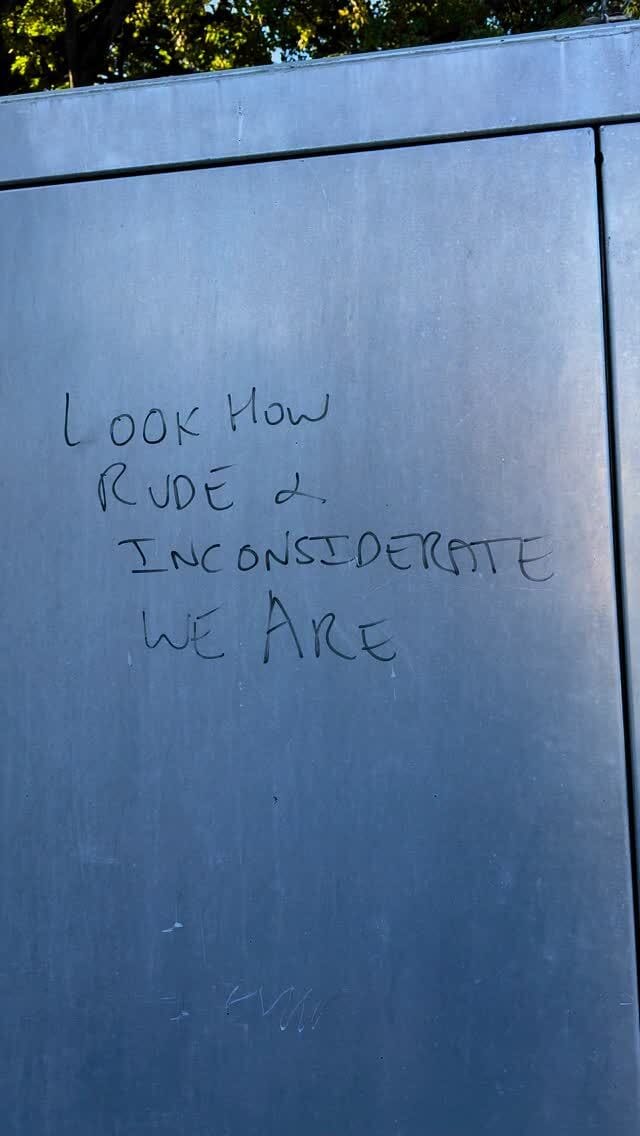 LOOK HOW
RUDE &
INCONSIDERATE
WE ARE